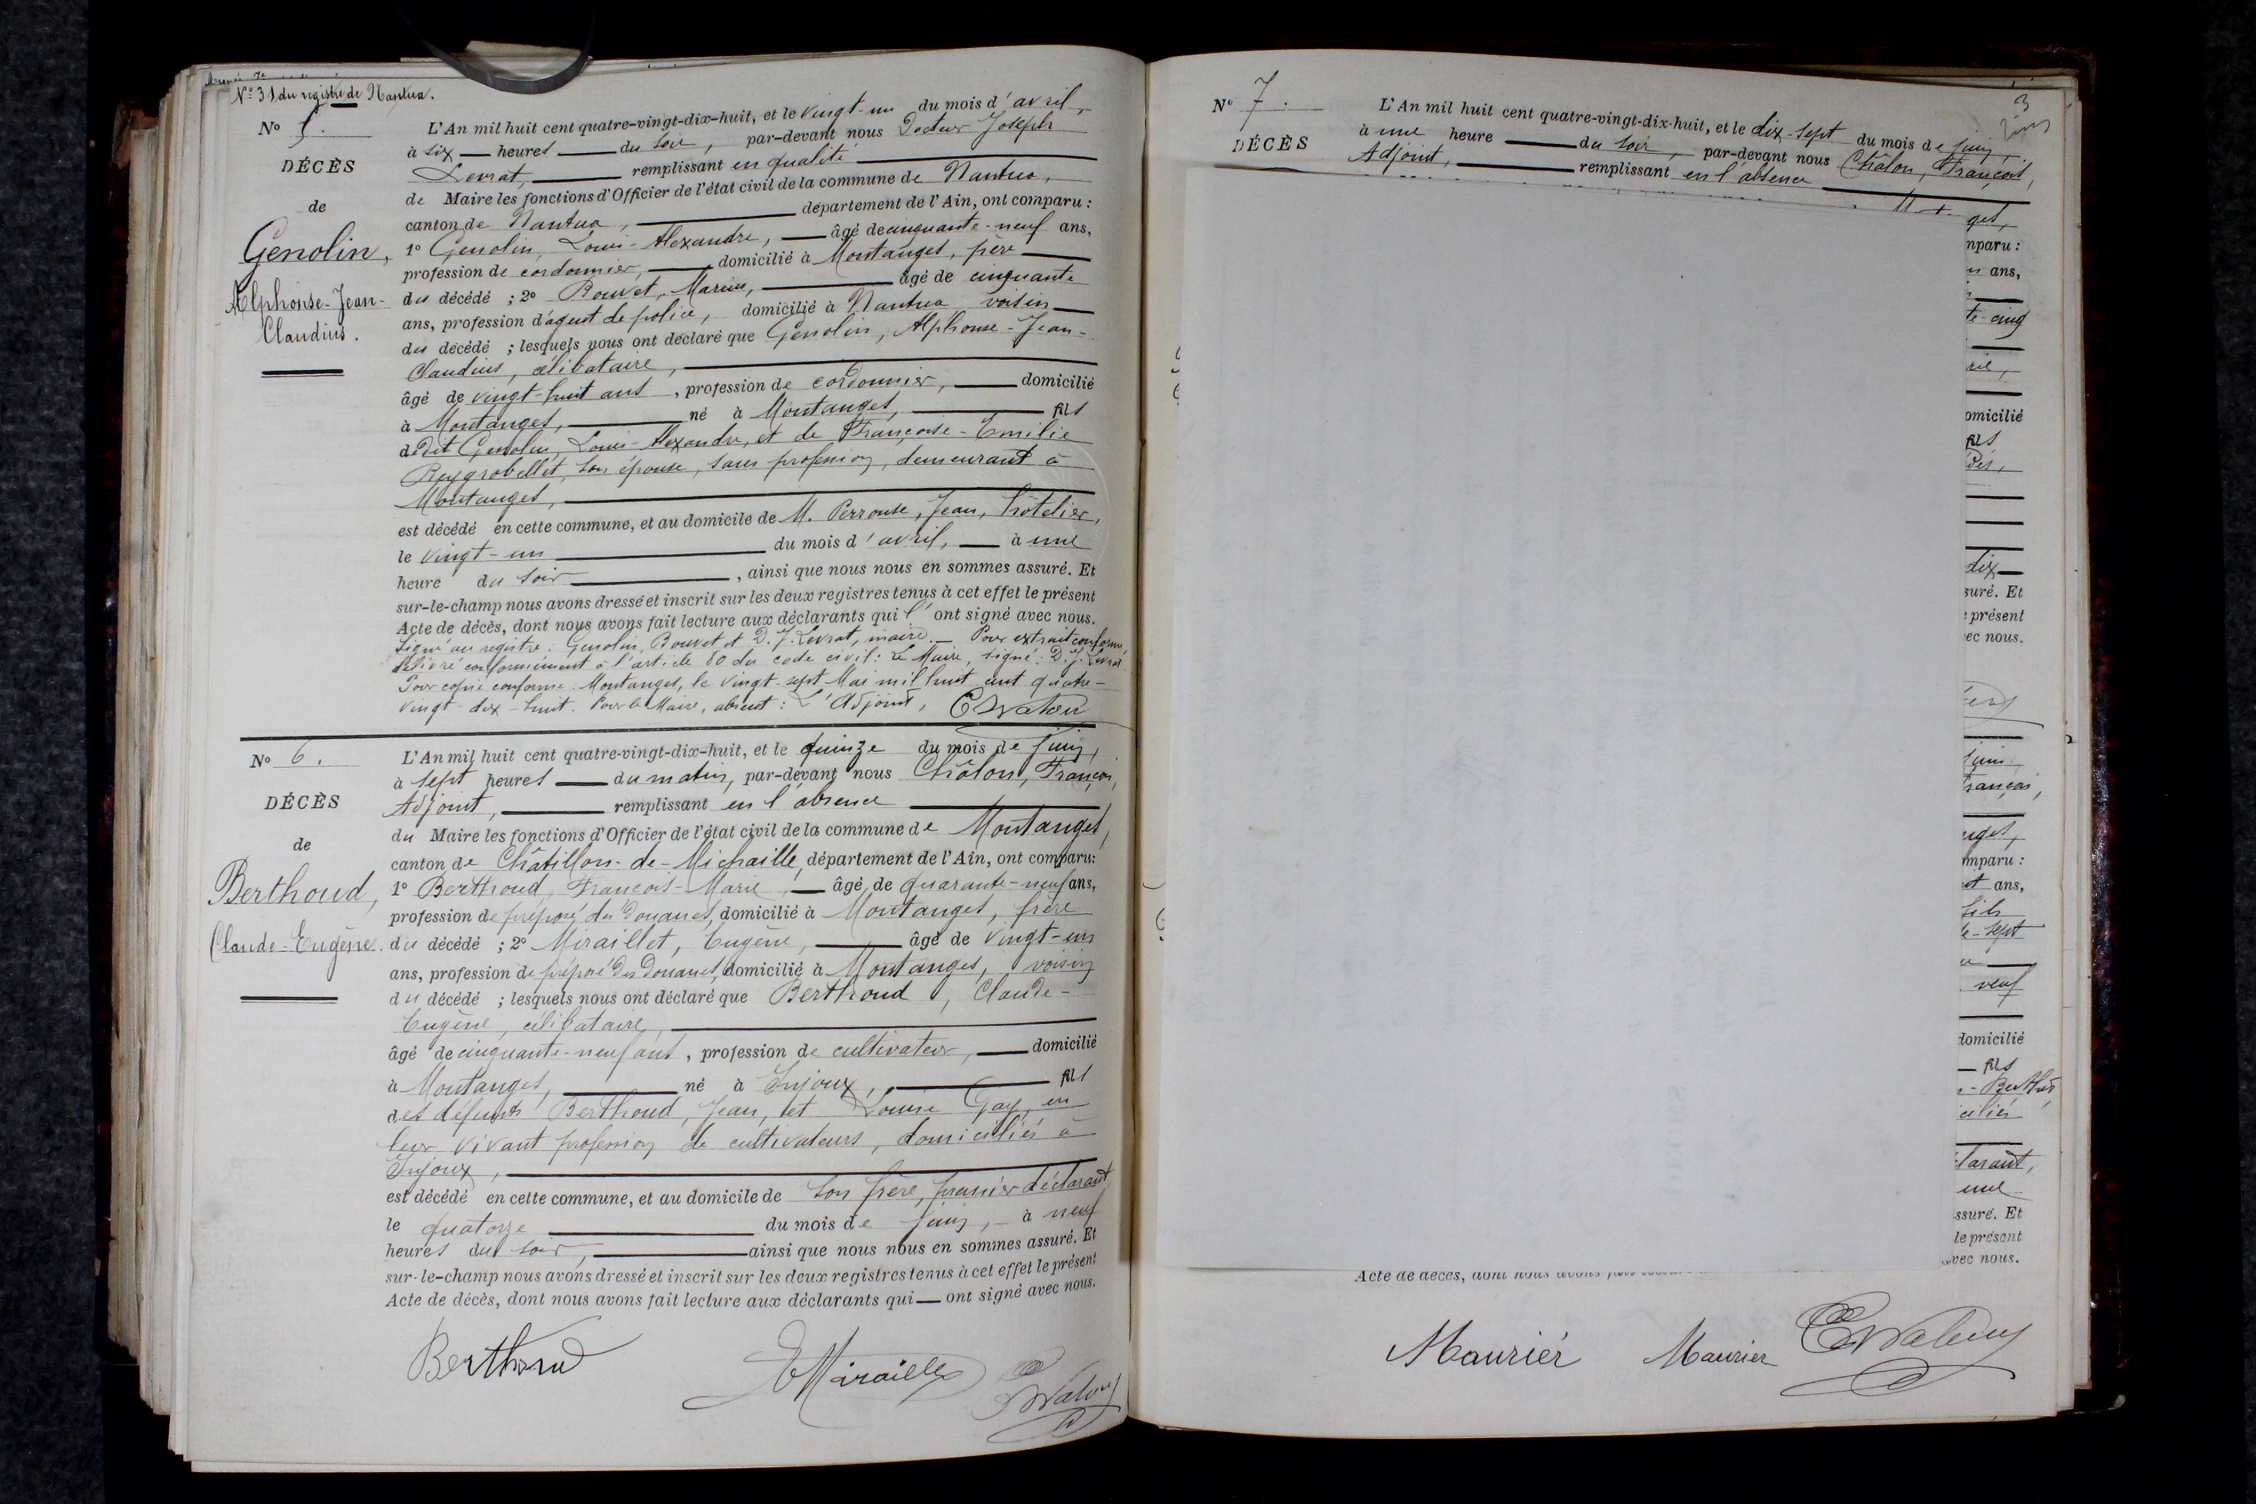 N° 31 du registre de Nantua.
N° 5.
DÉCÈS
de
Genolin,
Alphonse-Jean-
Claudius.
L'An mil huit cent quatre-vingt-dix-huit, et le vingt-un du mois d'avril,
à six heures du soir, par-devant nous Docteur Joseph
Levrat, remplissant en qualité
de Maire les fonctions d'Officier de l'état civil de la commune de Nantua,
canton de Nantua, département de l'Ain, ont comparu :
1° Genolin, Louis-Alexandre, âgé de cinquante-neuf ans,
profession de cordonnier, domicilié à Montanges, père
du décédé ; 2° Bouvet, Marius, âgé de cinquante
ans, profession d'agent de police, domicilié à Nantua voisin
du décédé ; lesquels nous ont déclaré que Genolin, Alphonse-Jean-
Claudius, célibataire,
âgé de vingt-huit ans, profession de cordonnier, domicilié
à Montanges, né à Montanges, fils
dudit Genolin, Louis-Alexandre, et de Françoise-Emilie
Reygrobellet, son épouse, sans profession, demeurant à
Montanges,
est décédé en cette commune, et au domicile de M. Perrouse, Jean, hôtelier,
le vingt-un du mois d'avril, à une
heure du soir, ainsi que nous nous en sommes assuré. Et
sur-le-champ nous avons dressé et inscrit sur les deux registres tenus à cet effet le présent
Acte de décès, dont nous avons fait lecture aux déclarants qui l'ont signé avec nous.
Signé au registre : Genolin, Bouvet et D. J. Levrat, maire. — Pour extrait conforme
délivré conformément à l'article 80 du code civil : Le Maire, signé : D. J. Levrat
Pour copie conforme : Montanges, le vingt-sept Mai mil huit cent quatre-
vingt-dix-huit. Pour le Maire, absent : L'Adjoint,
N° 6.
DÉCÈS
de
Berthoud,
Claude-Eugène.
L'An mil huit cent quatre-vingt-dix-huit, et le quinze du mois de juin,
à sept heures du matin, par-devant nous Châlon, François,
Adjoint, remplissant en l'absence
du Maire les fonctions d'Officier de l'état civil de la commune de Montanges,
canton de Châtillon-de-Michaille, département de l'Ain, ont comparu:
1° Berthoud, François-Marie, âgé de quarante-neuf ans,
profession de préposé des Douanes, domicilié à Montanges, frère
du décédé ; 2° Miraillet, Eugène, âgé de vingt-un
ans, profession de préposé des Douanes, domicilié à Montanges, voisin
du décédé ; lesquels nous ont déclaré que Berthoud, Claude-
Eugène, célibataire,
âgé de cinquante-neuf ans, profession de cultivateur, domicilié
à Montanges, né à Injoux, fils
des défunts Berthoud, Jean, et Louise Gay, en
leur vivant profession de cultivateurs, domiciliés à
Injoux,
est décédé en cette commune, et au domicile de son frère, premier déclarant
le quatorze du mois de juin, à neuf
heures du soir, ainsi que nous nous en sommes assuré. Et
sur-le-champ nous avons dressé et inscrit sur les deux registres tenus à cet effet le présent
Acte de décès, dont nous avons fait lecture aux déclarants qui ont signé avec nous.
Berthoud
N° 7.
DÉCÈS
3
L'An mil huit cent quatre-vingt-dix-huit, et le dix-sept du mois de juin,
à une heure du soir, par-devant nous Châlon, François,
Adjoint, remplissant en l'absence
ges,
mparu :
ans,
te-cinq
omicilié
fils
dix
suré. Et
présent
ec nous.
juin,
François,
nges,
mparu :
ans,
fils
e-sept
veuf
domicilié
fils
ciliés
larant,
une
ssuré. Et
le présent
avec nous.
Acte de décès, dont nous avons
Maurier Maurier